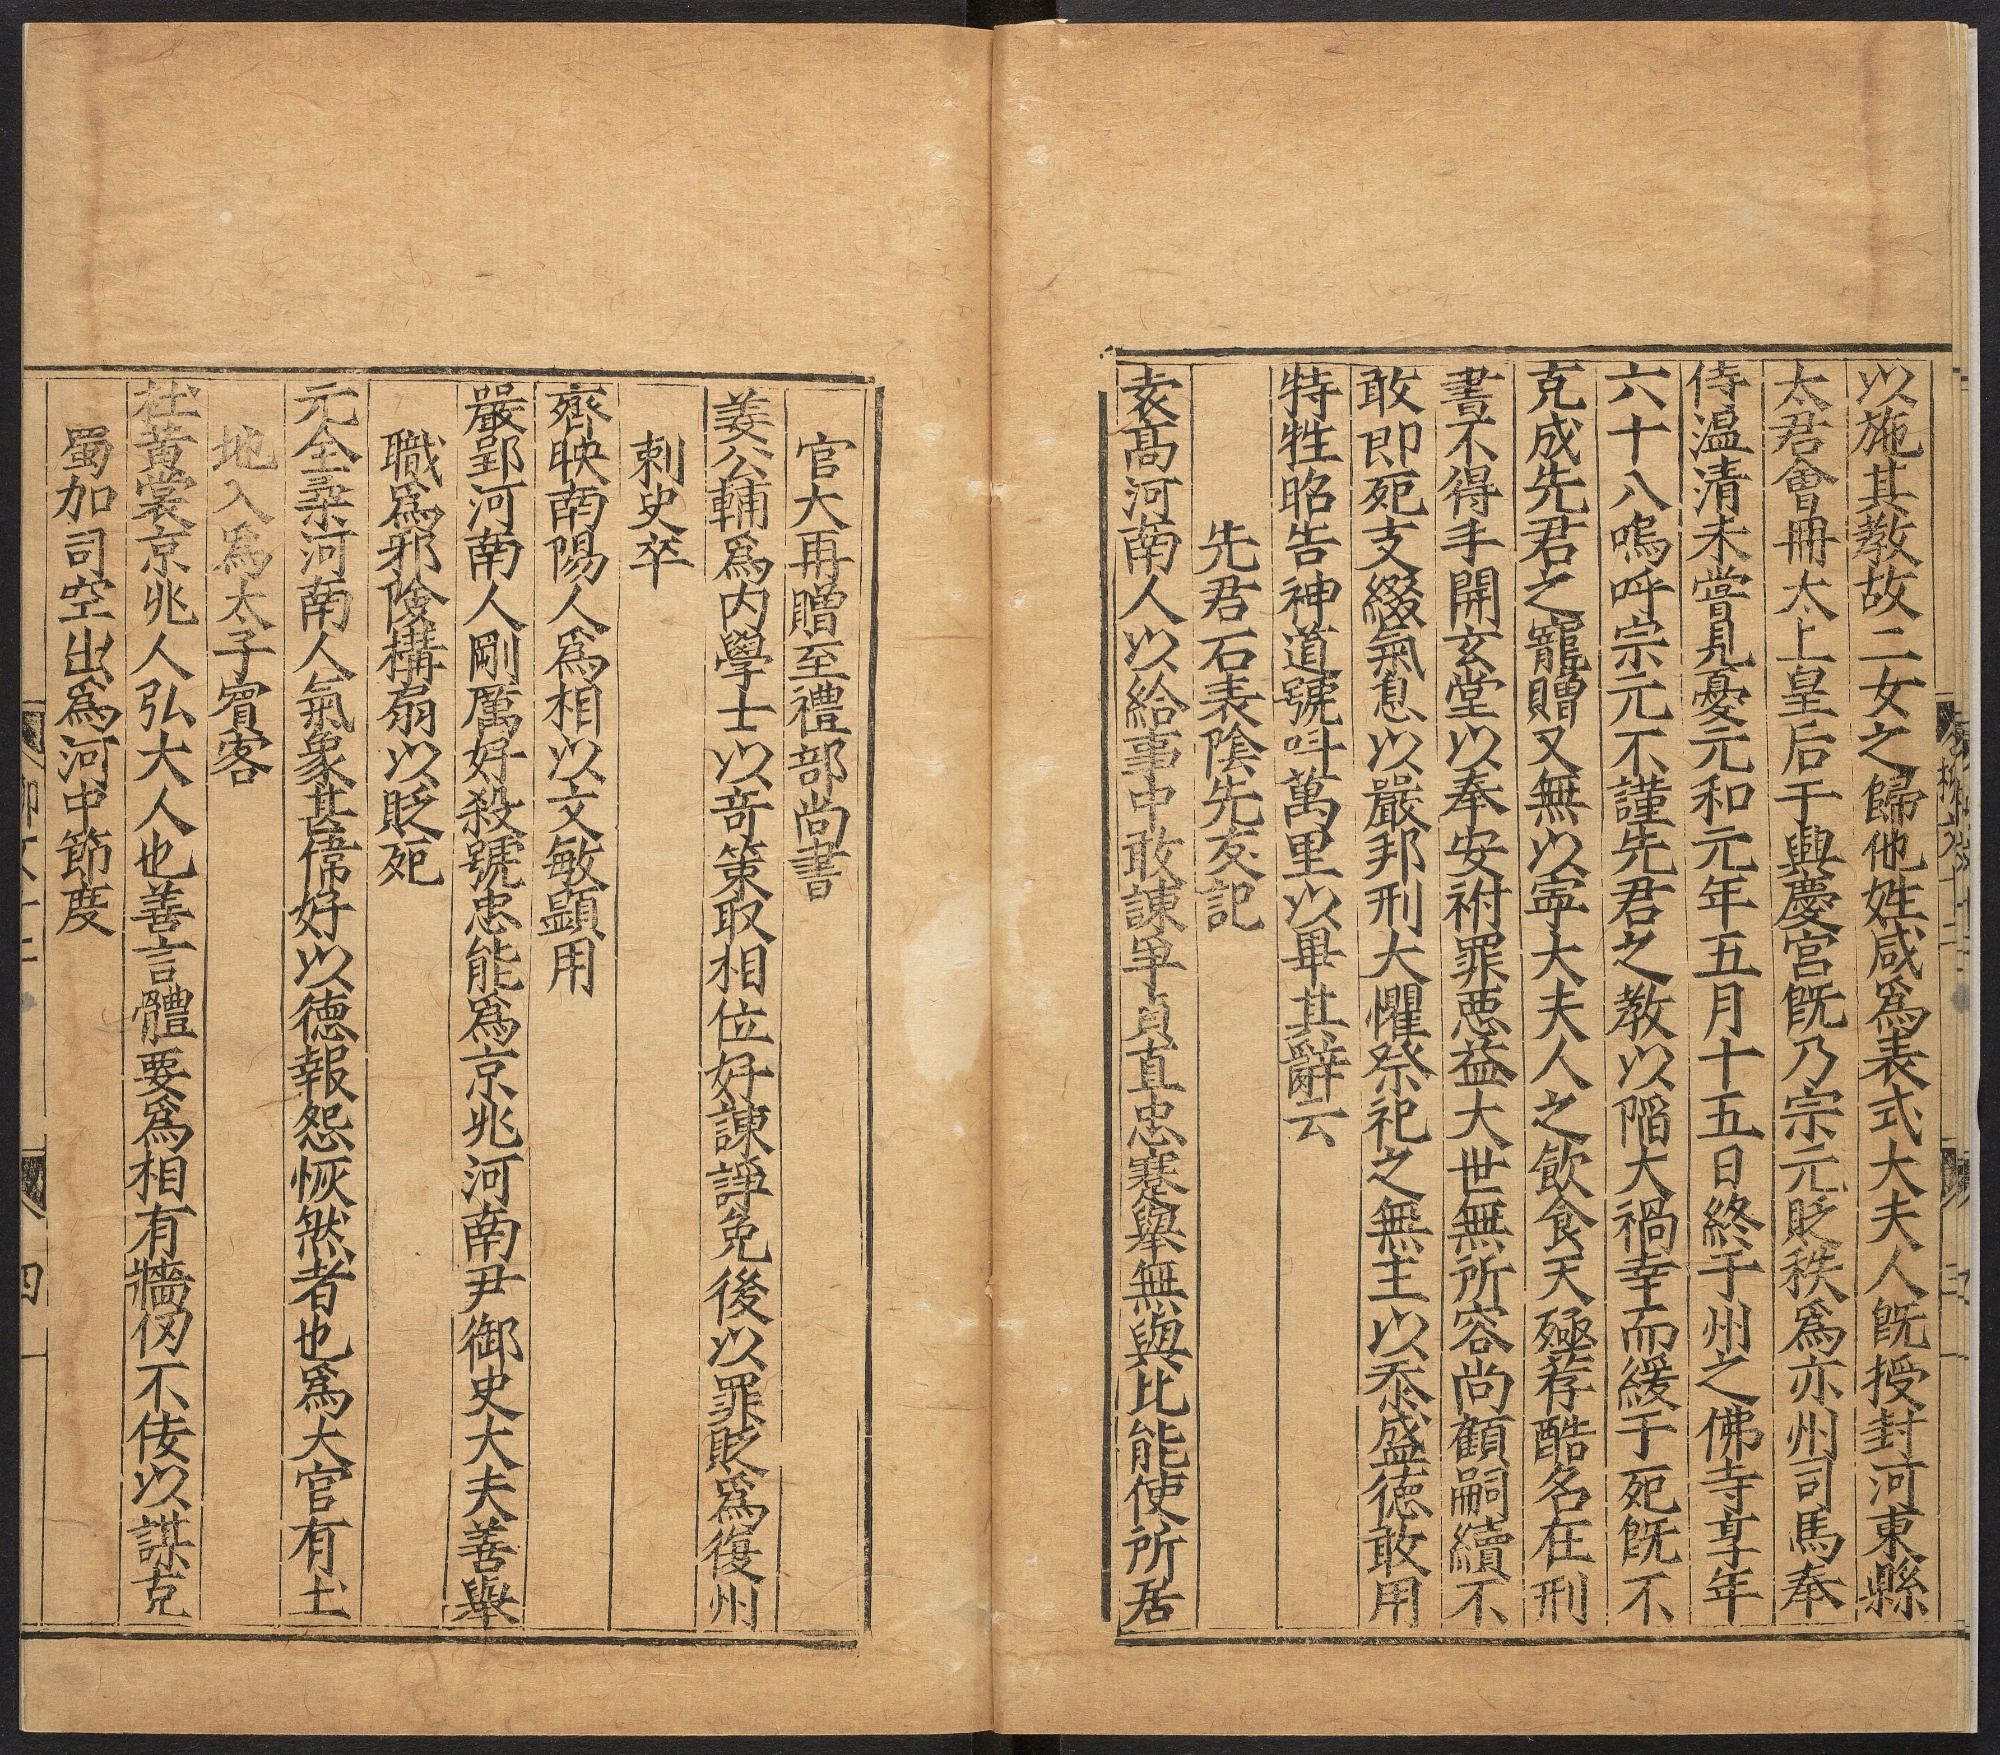 以施其教故二女之歸他姓咸爲表式大夫人既授封河東縣
太君會冊太上皇后于興慶宮既乃宗元貶秩爲永州司馬奉
侍温清未嘗見憂元和元年五月十五日終于州之佛寺享年
六十八嗚呼宗元不謹先君之教以陷大禍幸而緩于死既不
克成先君之寵贈又無以寧大夫人之飲食天殛荐酷名在刑
書不得手開玄堂以奉安祔罪惡益大世無所容尚顧嗣續不
敢即死支綴氣息以嚴邦刑大懼祭祀之無主以忝盛德敢用
特牲昭告神道號呌萬里以畢其辭云
先君石表陰先友記
袁髙河南人以給事中敢諫争貞直忠蹇舉無與比能使所居
官大再贈至禮部尚書
姜公輔爲内學士以竒策取相位好諫諍免後以罪貶爲復州
刺史卒
齊映南陽人爲相以文敏顯用
嚴郢河南人剛厲好殺號忠能爲京兆河南尹御史大夫善舉
職爲邪險構扇以貶死
元全柔河南人氣象甚偉好以德報怨恢然者也爲大官有土
地入爲太子賓客
杜黄裳京兆人弘大人也善言體要爲相有牆仞不佞以謀克
蜀加司空出爲河中節度
四